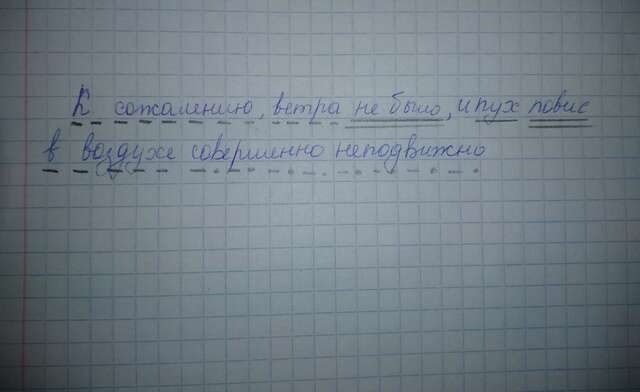 К сожалению, ветра не было, и пух повис
в воздухе совершенно неподвижно